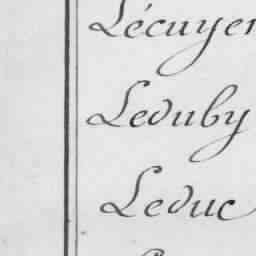 Lécuyer
Leduby
Leduc